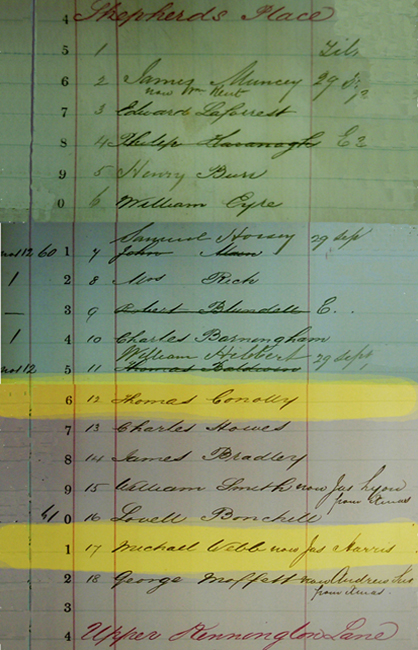 4 Shepherds Place
5 1
6 2 James Muncey 29
now Wm Kent
7 3 Edward Laforrest
8 4 Philip Kavanagh E
9 5 Henry Burr
0 6 William Eyre
Samuel Horsey 29 Sep
12 60 1 7 John Mann
1 2 8 Mrs Rich
— 3 9 Robert Blundell E..
1 4 10 Charles Barningham
William Hibbert 29 Sept
12 5 11 Thomas Baldwin
6 12 Thomas Conolly
7 13 Charles Howes
8 14 James Bradley
9 15 William Smith now Jas Lyon
from Xmas
41 0 16 Lovell Bonchell
1 17 Michael Webb now Jas Harris
2 18 George Moffett now Andrew
from Xmas.
3
4 Upper Kennington Lane